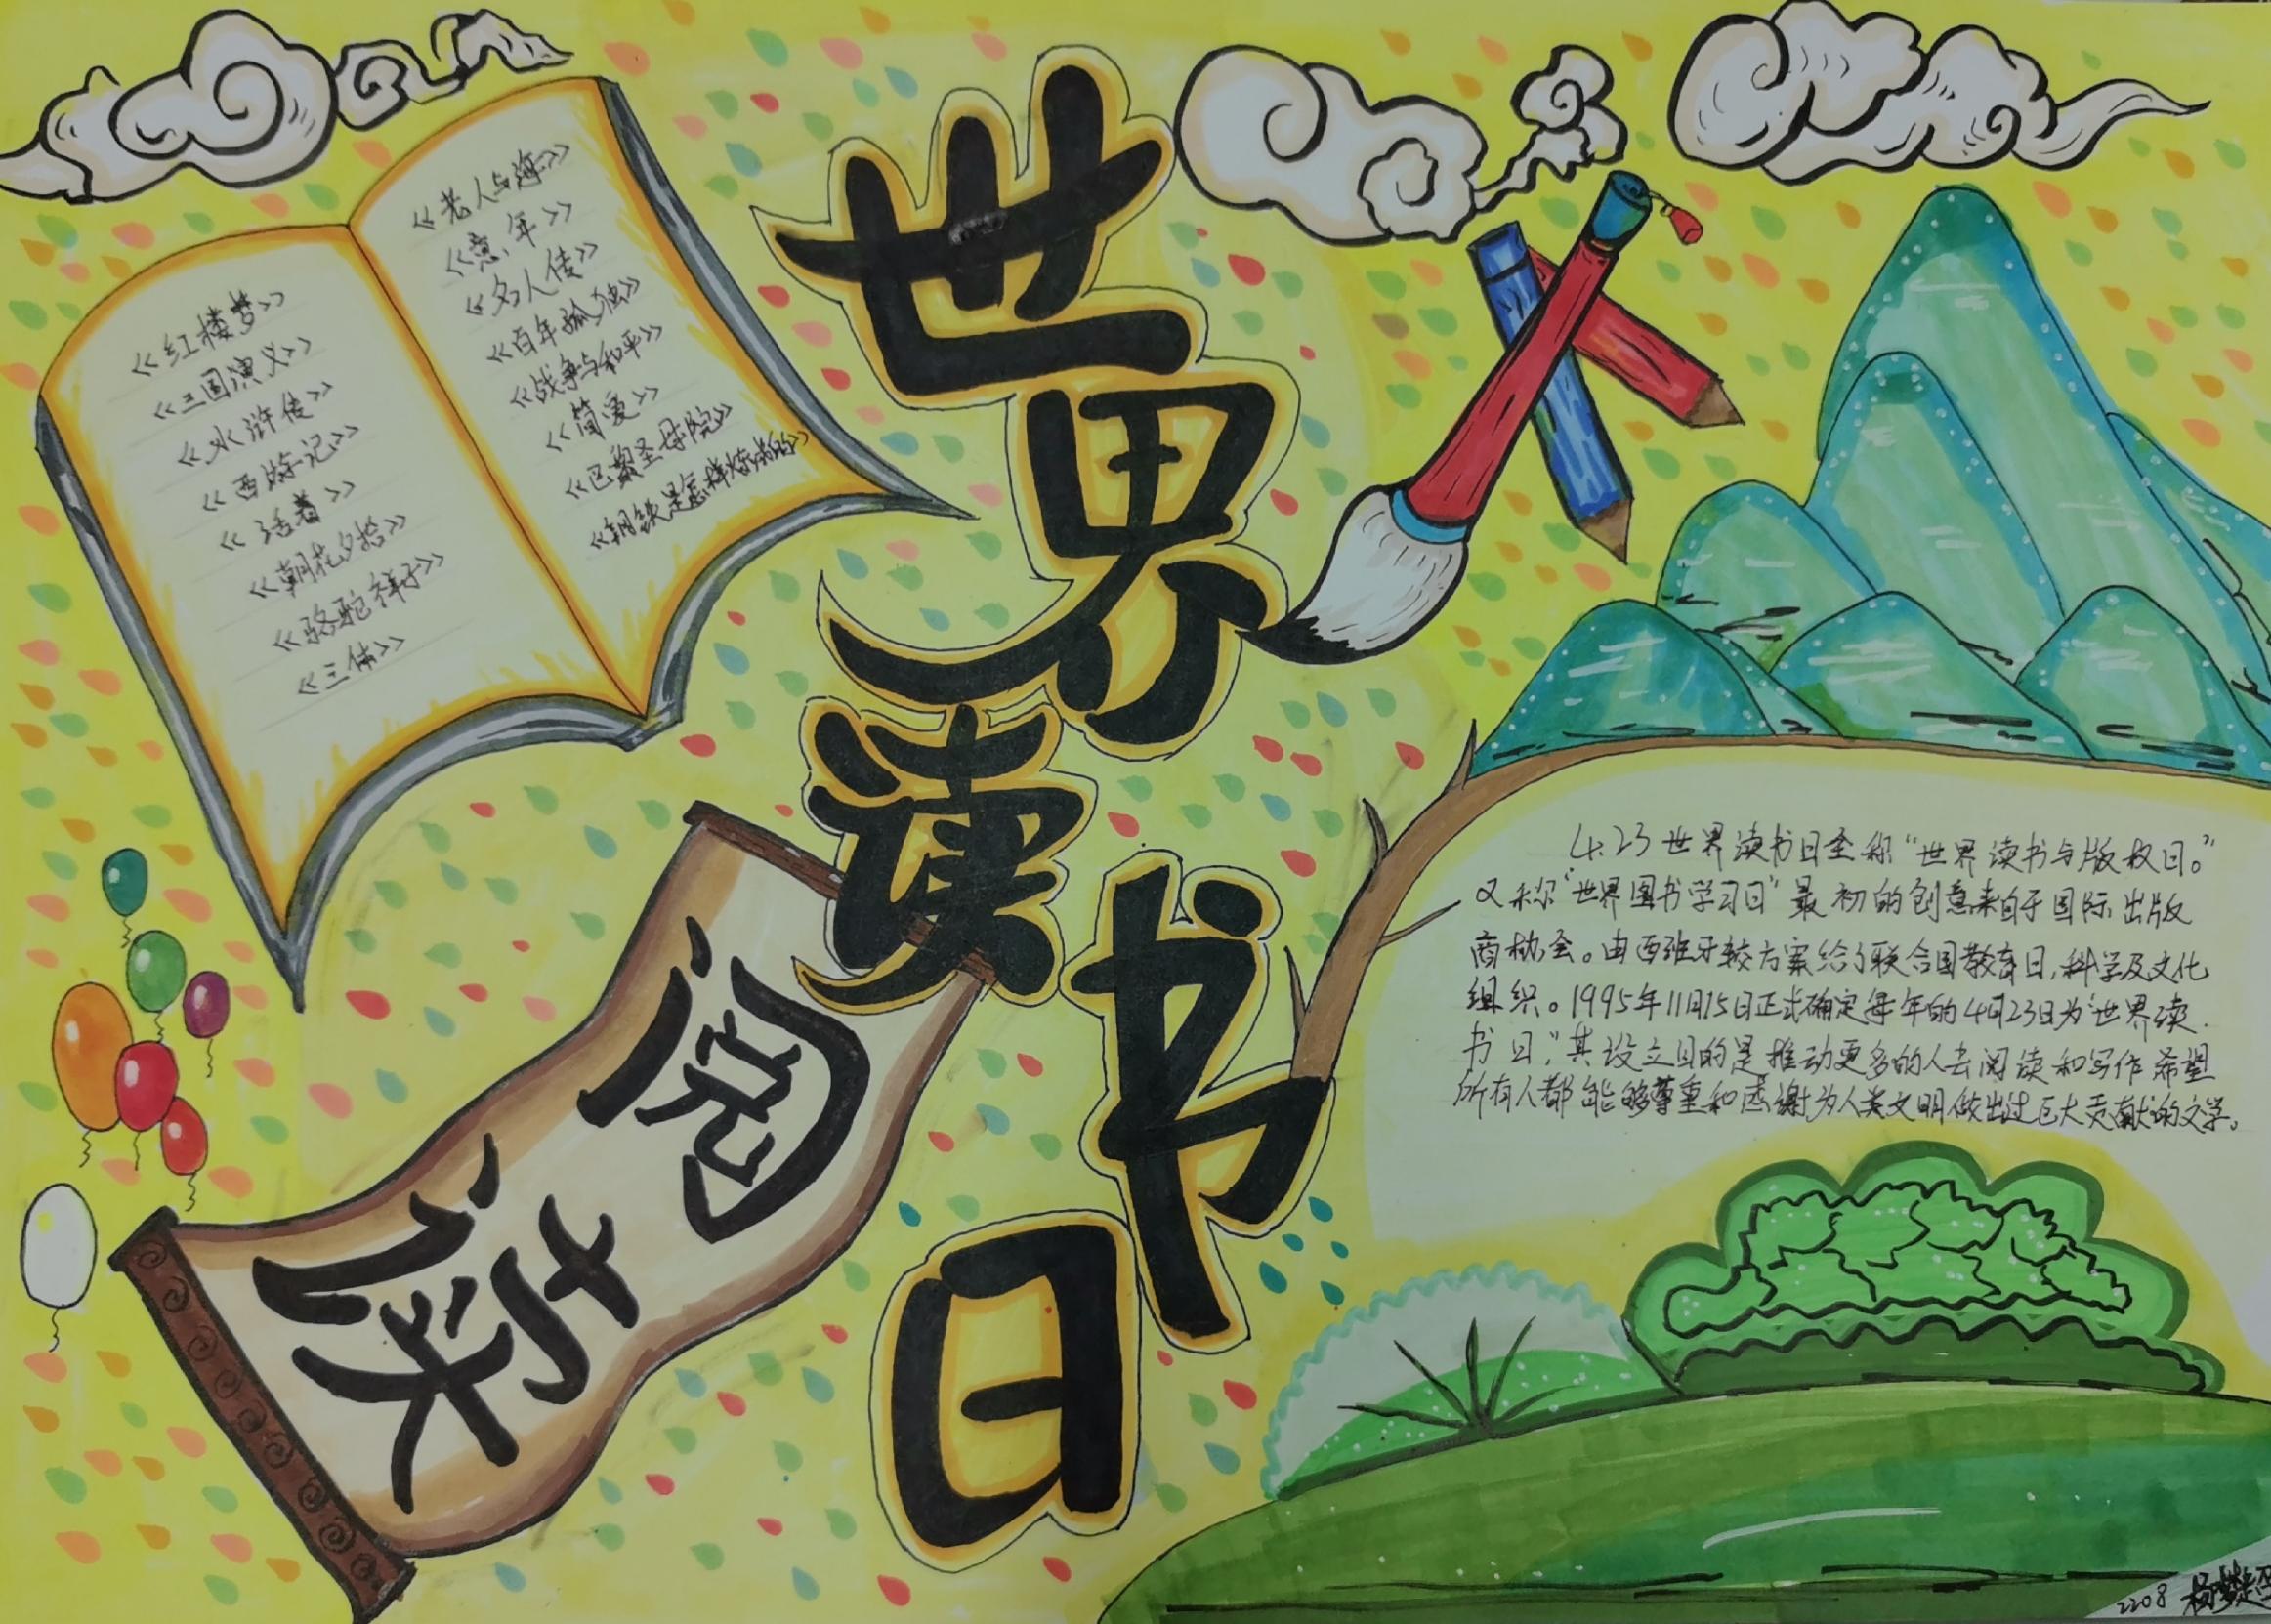 世界读书日
阅读
《红楼梦》
《三国演义》
《水浒传》
《西游记》
《活着》
《朝花夕拾》
《骆驼祥子》
《三体》
《老人与海》
《意年》
《名人传》
《百年孤独》
《战争与和平》
《简爱》
《巴黎圣母院》
《钢铁是怎样炼成的》
4.23世界读书日全称“世界读书与版权日。”
又称“世界图书学习日”最初的创意来自于国际出版
商协会。由西班牙较方案给了联合国教育日,科学及文化
组织。1995年11月15日正式确定每年的4月23日为“世界读
书日”,其设立目的是推动更多的人去阅读和写作希望
所有人都能够尊重和感谢为人类文明做出过巨大贡献的文学。
2208